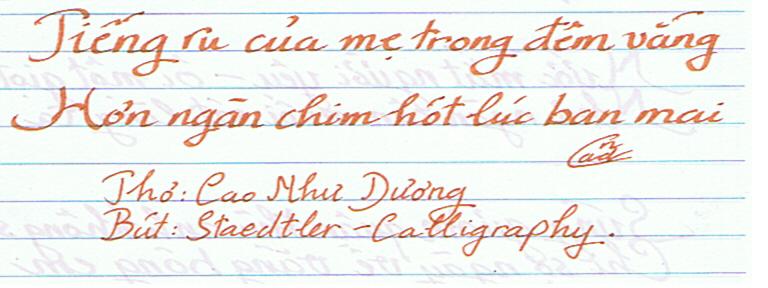 Tiếng ru của mẹ trong đêm vắng
Hơn ngàn chim hót lúc ban mai
Thơ: Cao Như Dương
Bút: Staedtler - Calligraphy.